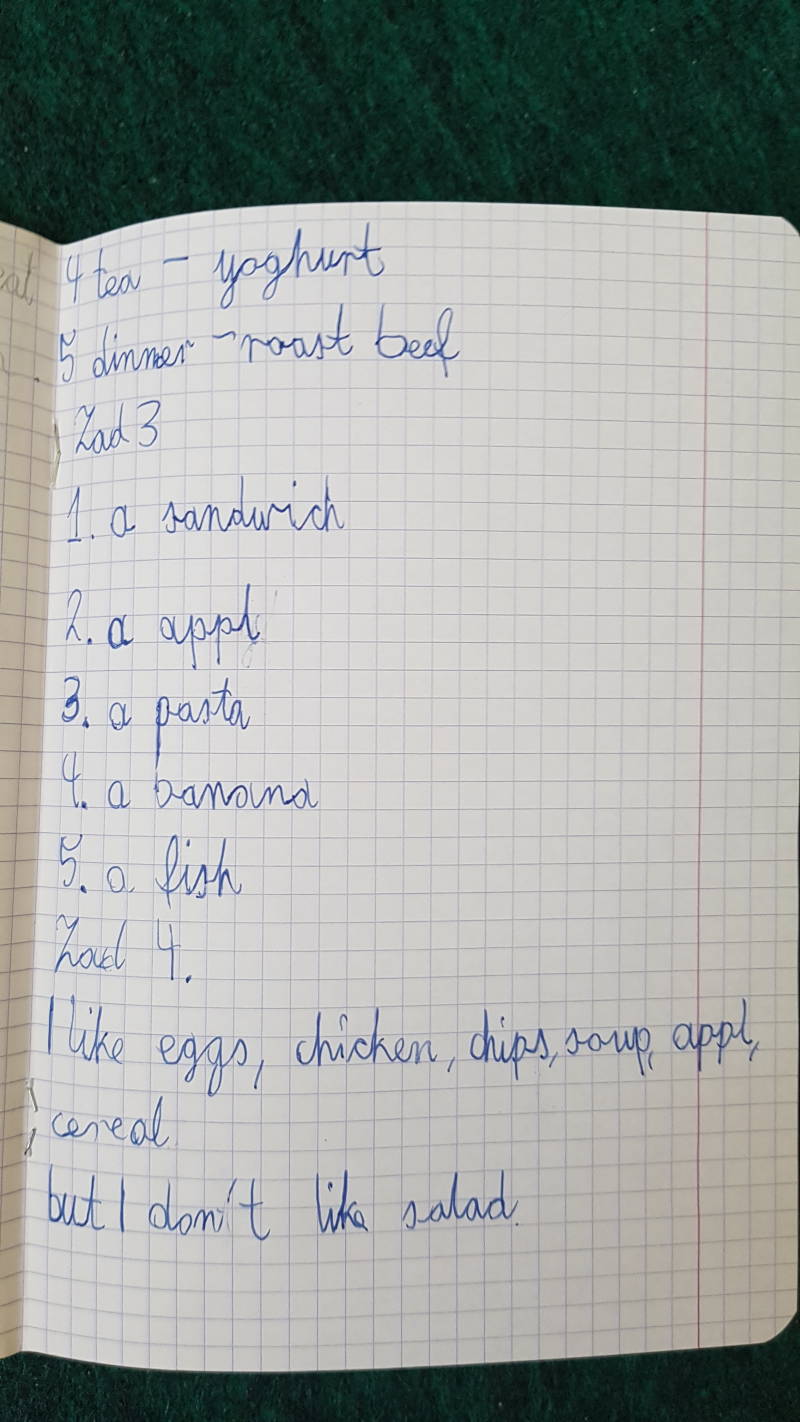 4 tea – yoghurt
5 dinner – roast beef
Zad 3
1. a sandwich
2. a appl
3. a pasta
4. a banana
5. a fish
Zad 4.
I like eggs, chicken, chips, soup, appl,
cereal
but I don't like salad.